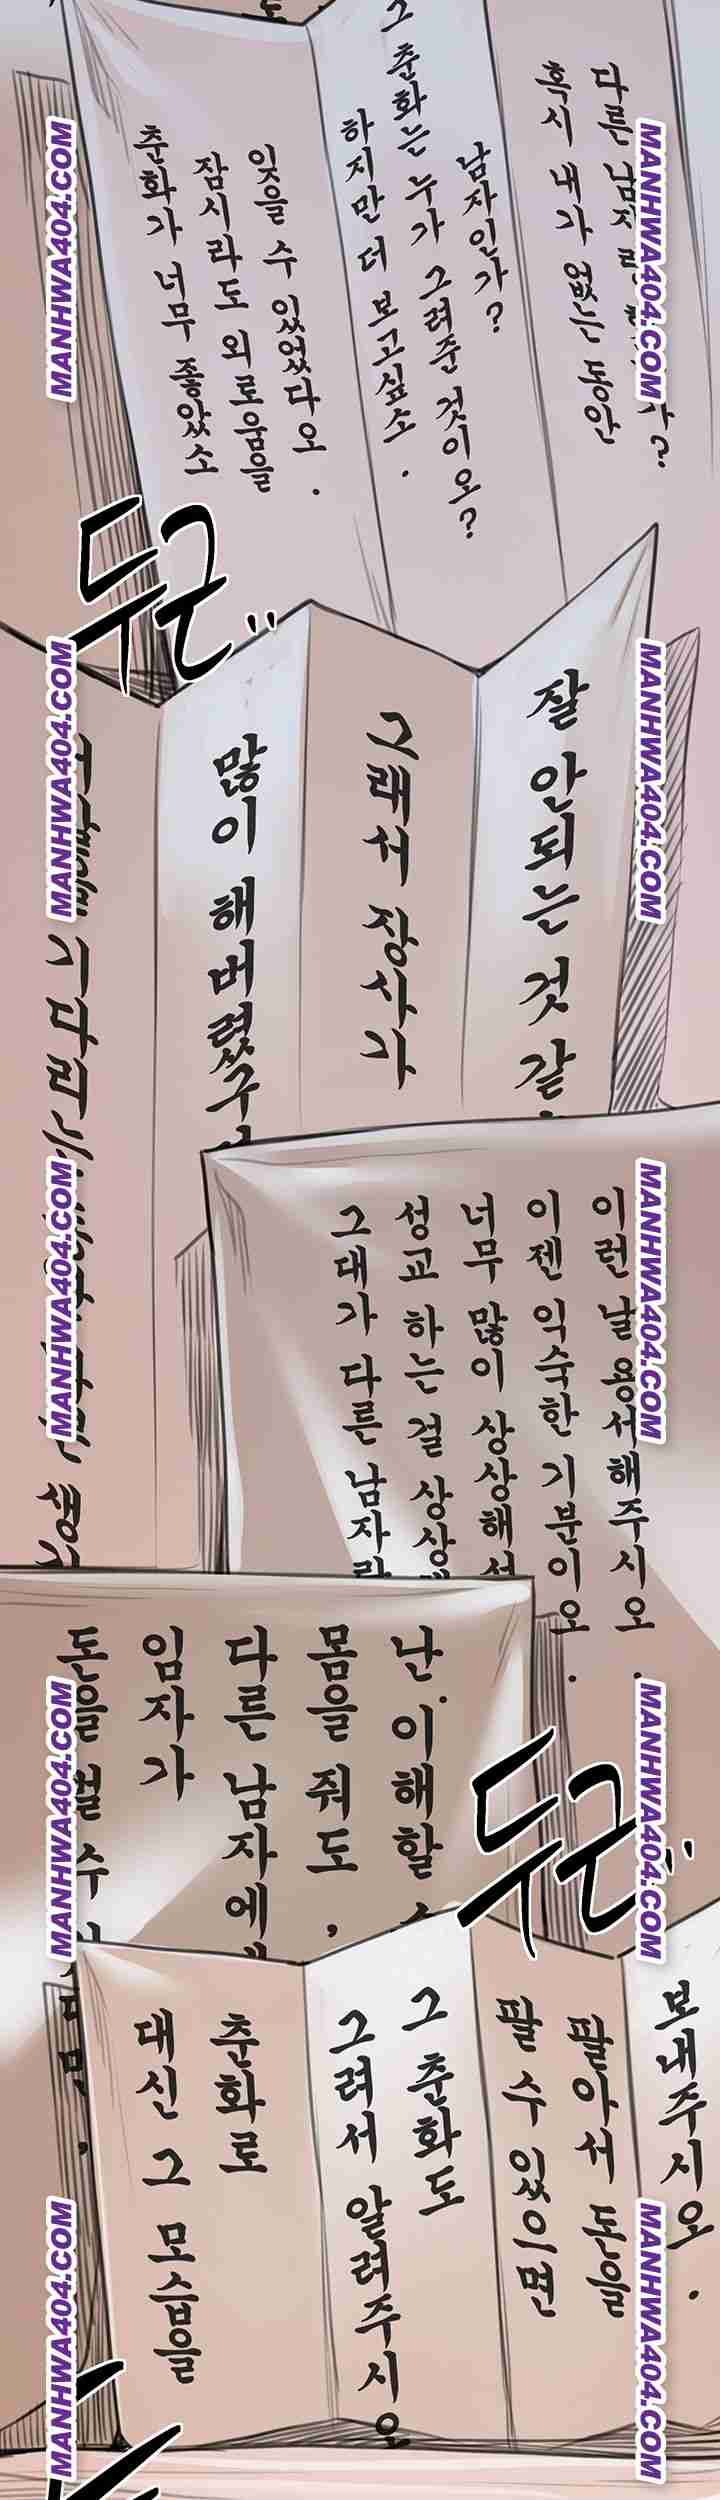 춘화가 너무 좋았소
잠시라도 외로움을
잊을 수 있었다오.
하지만 더 보고싶소.
그 춘화는 누가 그려준 것이오?
남자인가?
혹시 내가 없는 동안
다른
두근
기다리
많이 해버렸구
그래서 장사가
잘 안되는 것 같
그대가 다른 남자랑
성교 하는 걸 상상
너무 많이 상상해서
이젠 익숙한 기분이오.
이런 날 용서해주시오.
돈을 벌 수
임자가
다른 남자에게
몸을 줘도,
난 이해할
두근
대신 그 모습을
춘화로
그려서 알려주시오
그 춘화도
팔 수 있으면
팔아서 돈을
보내주시오.
MANHWA404.COM
MANHWA404.COM
MANHWA404.COM
MANHWA404.COM
MANHWA404.COM
MANHWA404.COM
MANHWA404.COM
MANHWA404.COM
MANHWA404.COM
MANHWA404.COM